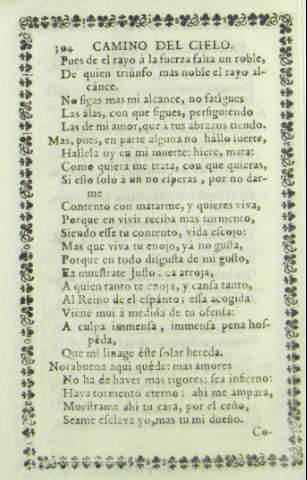 304 CAMINO DEL CIELO.
Pues de el rayo à la fuerza falta un roble,
De quien triunfo mas noble el rayo al-
cánce.
No sigas mas mi alcance, no fatigues
Las álas, con que sigues, persiguiendo
Las de mi amor, que à tus abrazos tiendo.
Mas, pues, en parte alguna no hállo suerte,
Hallela oy en mi muerte: hiere, mata:
Como quiera me trata, con que quieras,
Si esto solo à un no esperas, por no dar-
me
Contento con matarme, y quieres viva,
Porque en vivir reciba mas tormento,
Siendo esse tu contento, vida escojo:
Mas que viva tu enojo, yà no gusta,
Porque en todo disgusta de mi gusto,
Ea muestrate Justo: ea arroja,
A quien tanto te enoja, y cansa tanto,
Al Reino de el espánto: essa acogida
Viene mui à medida de tu ofensa:
A culpa immensa, immensa pena hos-
péda,
Que mi linage éste solar hereda.
Norabuena aqui quéde: mas amores
No ha de haver mas rigores: sea infierno:
Haya tormento eterno: ahi me ampara,
Muestrame ahi tu cara, por el ceño,
Seame esclava yo, mas tu mi dueño.
Co-